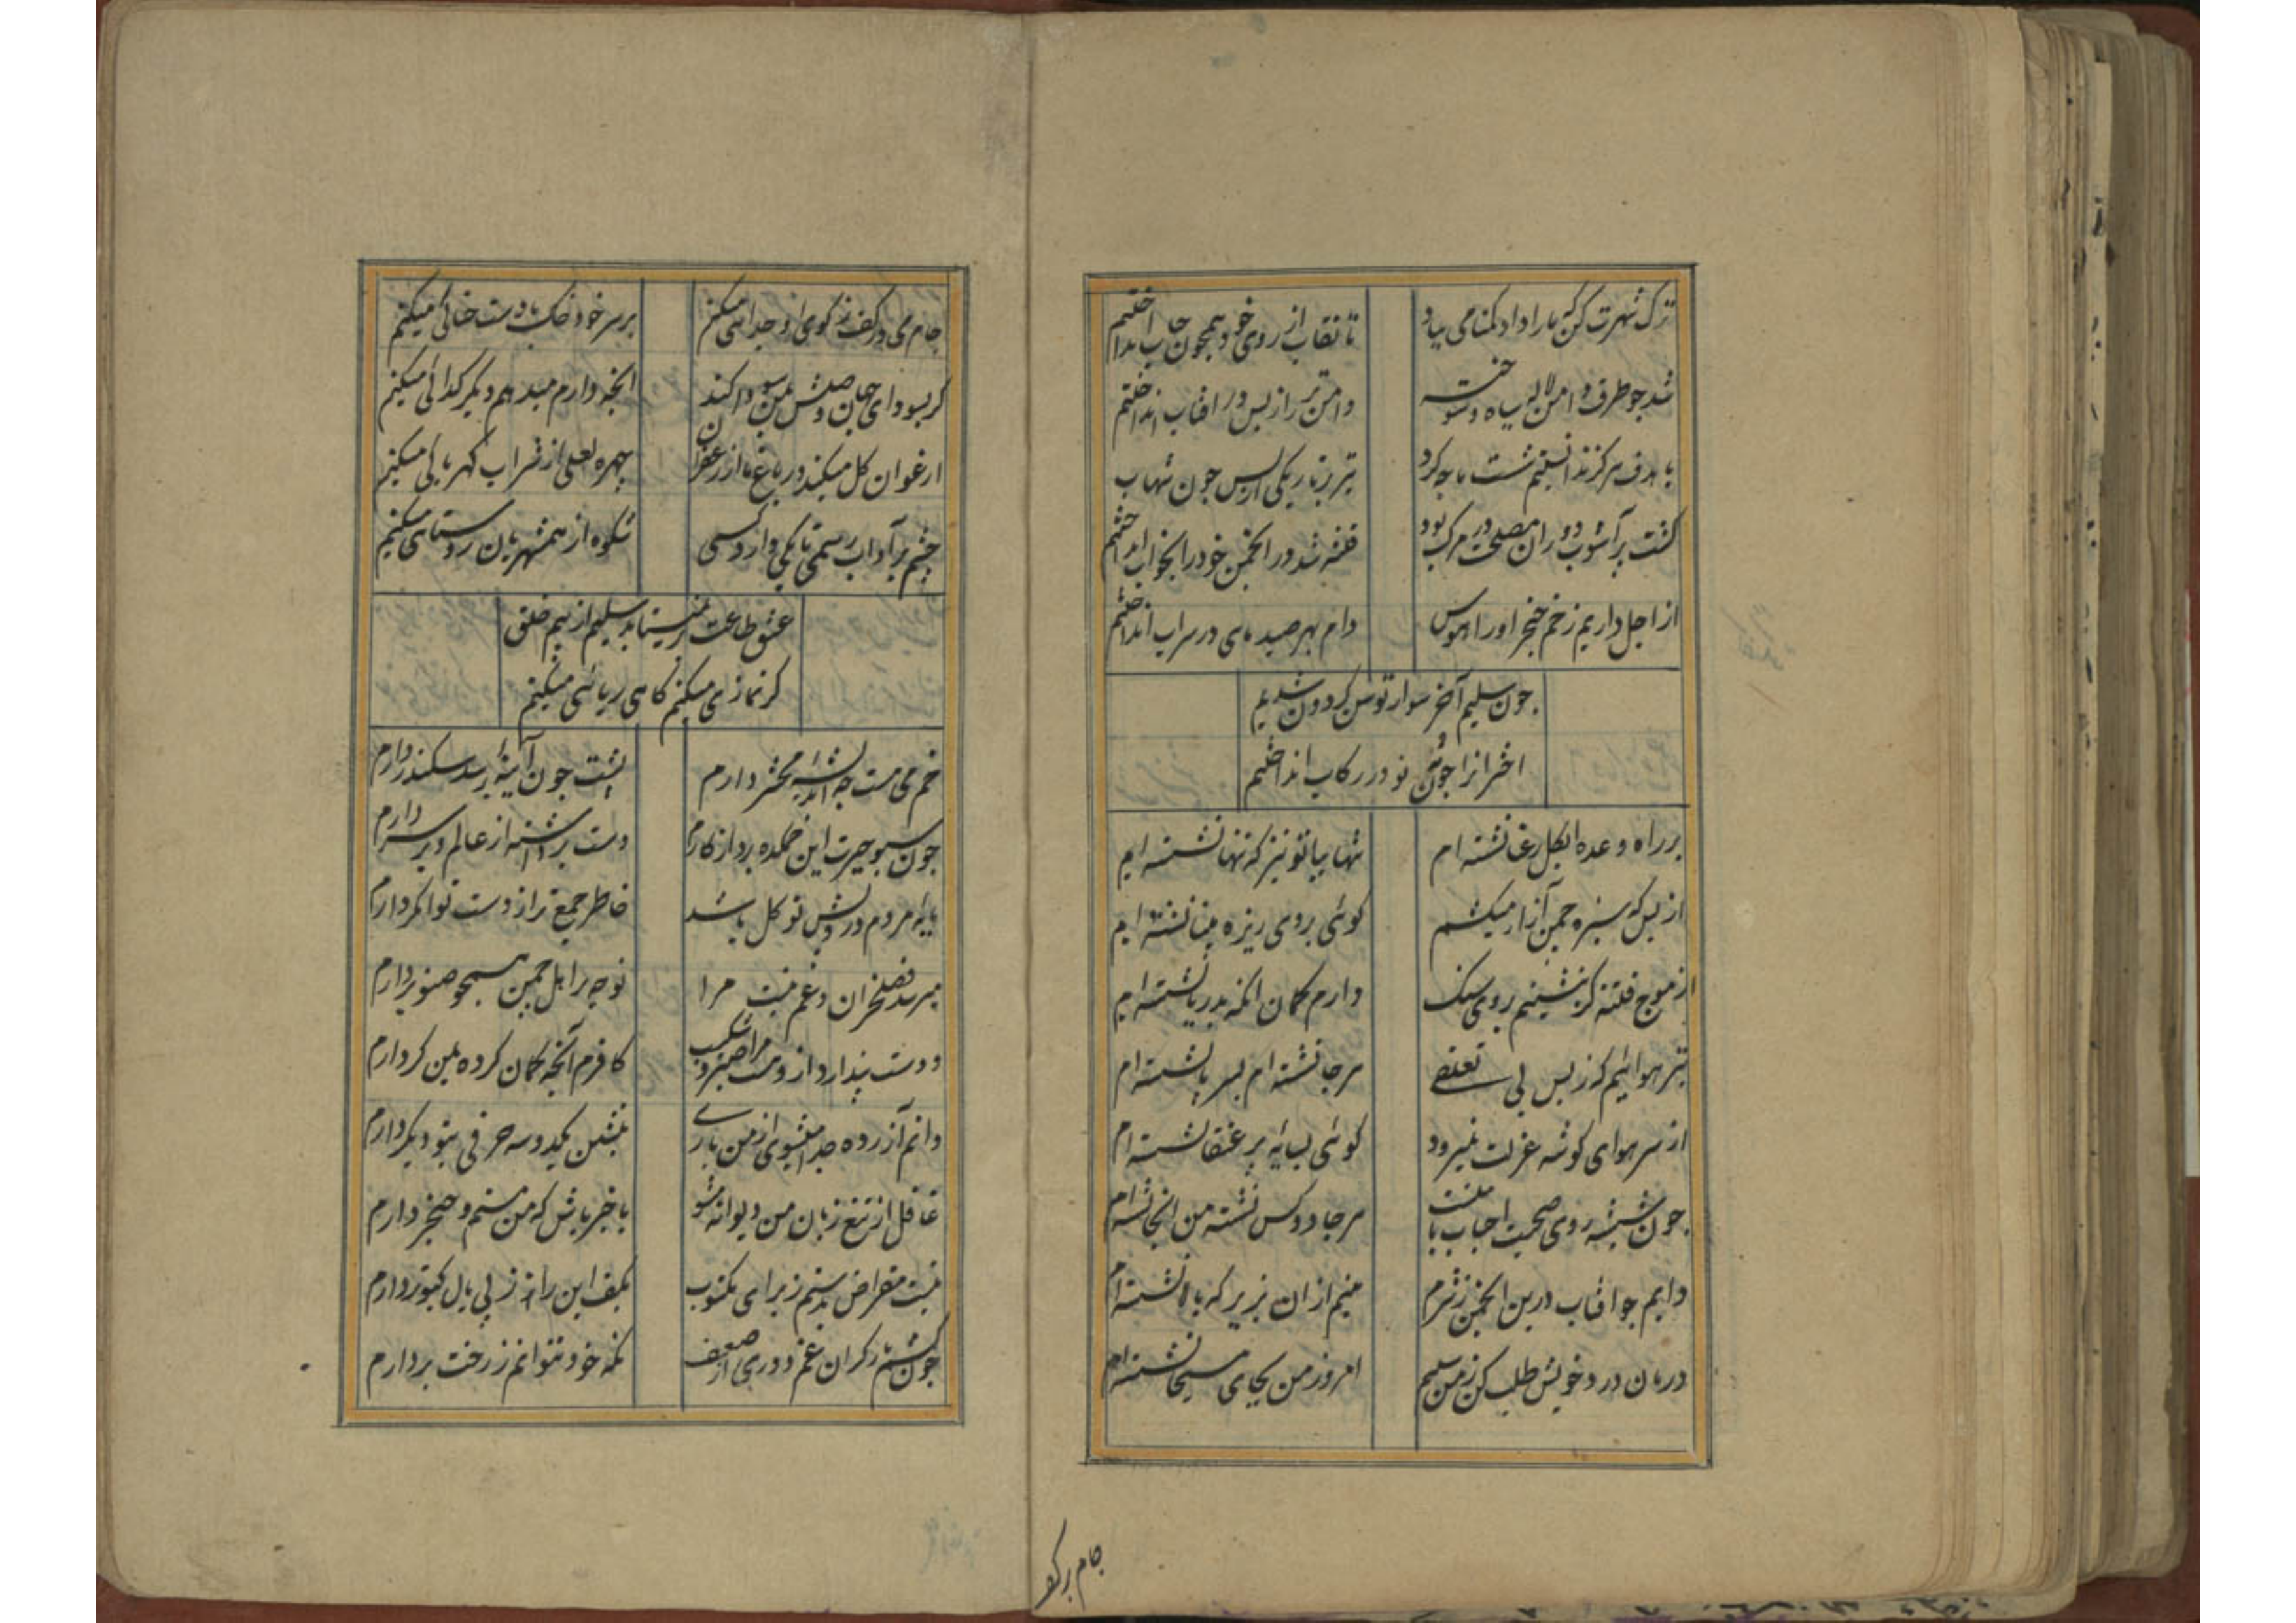 ترک شهرت کن که ما را داد گمنامی بباد تا نقاب از روی خود همچون حباب انداختیم
شد چو طرف دامن لاله سیاه و سوخته دامن تر را ز بس در آفتاب انداختیم
با هدف هرگز ندانستیم شست ما چه کرد تیر در تاریکی از بس چون شهاب انداختیم
گشت پر آشوب دوران مصلحت در مرگ بود فتنه شد در انجمن خود را بخواب انداختیم
از اجل داریم زخم خنجر او را هوس دام بهر صید ماهی در سراب انداختیم
چون سلیم آخر سوار توسن گردون شدیم
اختران را چون مه نو در رکاب انداختیم
بر راه وعده ای گل رعنا نشسته ام تنها بیا تو نیز که تنها نشسته ام
از بس که سبزه چمن آزار میکشم گوئی بروی ریزه مینا نشسته ام
از موج فتنه گر بنشینم بروی سنگ دارم گمان آنکه بدریا نشسته ام
تیر هوائیم که ز بس بی تعلقی هر جا نشسته ام بسر پا نشسته ام
از سر هوای گوشه عزلت نمیرود گوئی بسایه پر عنقا نشسته ام
چون شیشه روی صحبت احباب با منست هر جا دو کس نشسته من آنجا نشسته ام
دایم چو آفتاب درین انجمن ز شرم منهم از آن بزیر که بالا نشسته ام
درمان درد خویش طلب کن ز من سلیم امروز من بجای مسیحا نشسته ام
جام بر کف
جام می در کف ز کوی او جدائی میکنم بر سر خود خاک با دست حنائی میکنم
گر بسودای جهان وصلش بمن سودا کند آنچه دارم میدهم دیگر گدائی میکنم
ارغوان گل میکند در باغ ما از زعفران چهره لعلی از شراب کهربائی میکنم
چشم بر آداب رسمی تا بکی دارد کسی شکوه از همشهریان روستائی میکنم
عشق طاعت برنمیتابد سلیم از بیم خلق
گر نمازی میکنم گاهی ریائی میکنم
خم می هست چه اندیشه محشر دارم پشت چون آینه بر سد سکندر دارم
چون سبو حیرت این میکده برد از کارم دست برداشته از عالم و بر سر دارم
مایه مردم درویش توکل باشد خاطر جمعتر از دست توانگر دارم
میرسد فصل خزان و غم من نیست مرا نوحه بر اهل چمن همچو صنوبر دارم
دوست پندارد از دوست مرا صبر و شکیب کافرم آنچه گمان کرده بمن گر دارم
دانم آزرده جدا میشوی از من باری بنشین یکدو سه حرفی بتو دیگر دارم
غافل از تیغ زبان من دیوانه مشو با خبر باش که من مستم و خنجر دارم
نیست مقراض بدستم ز برای مکتوب بکف این را ز پی بال کبوتر دارم
چون کشم بار گران غم دوری از ضعف نگه خود نتوانم ز رخت بردارم